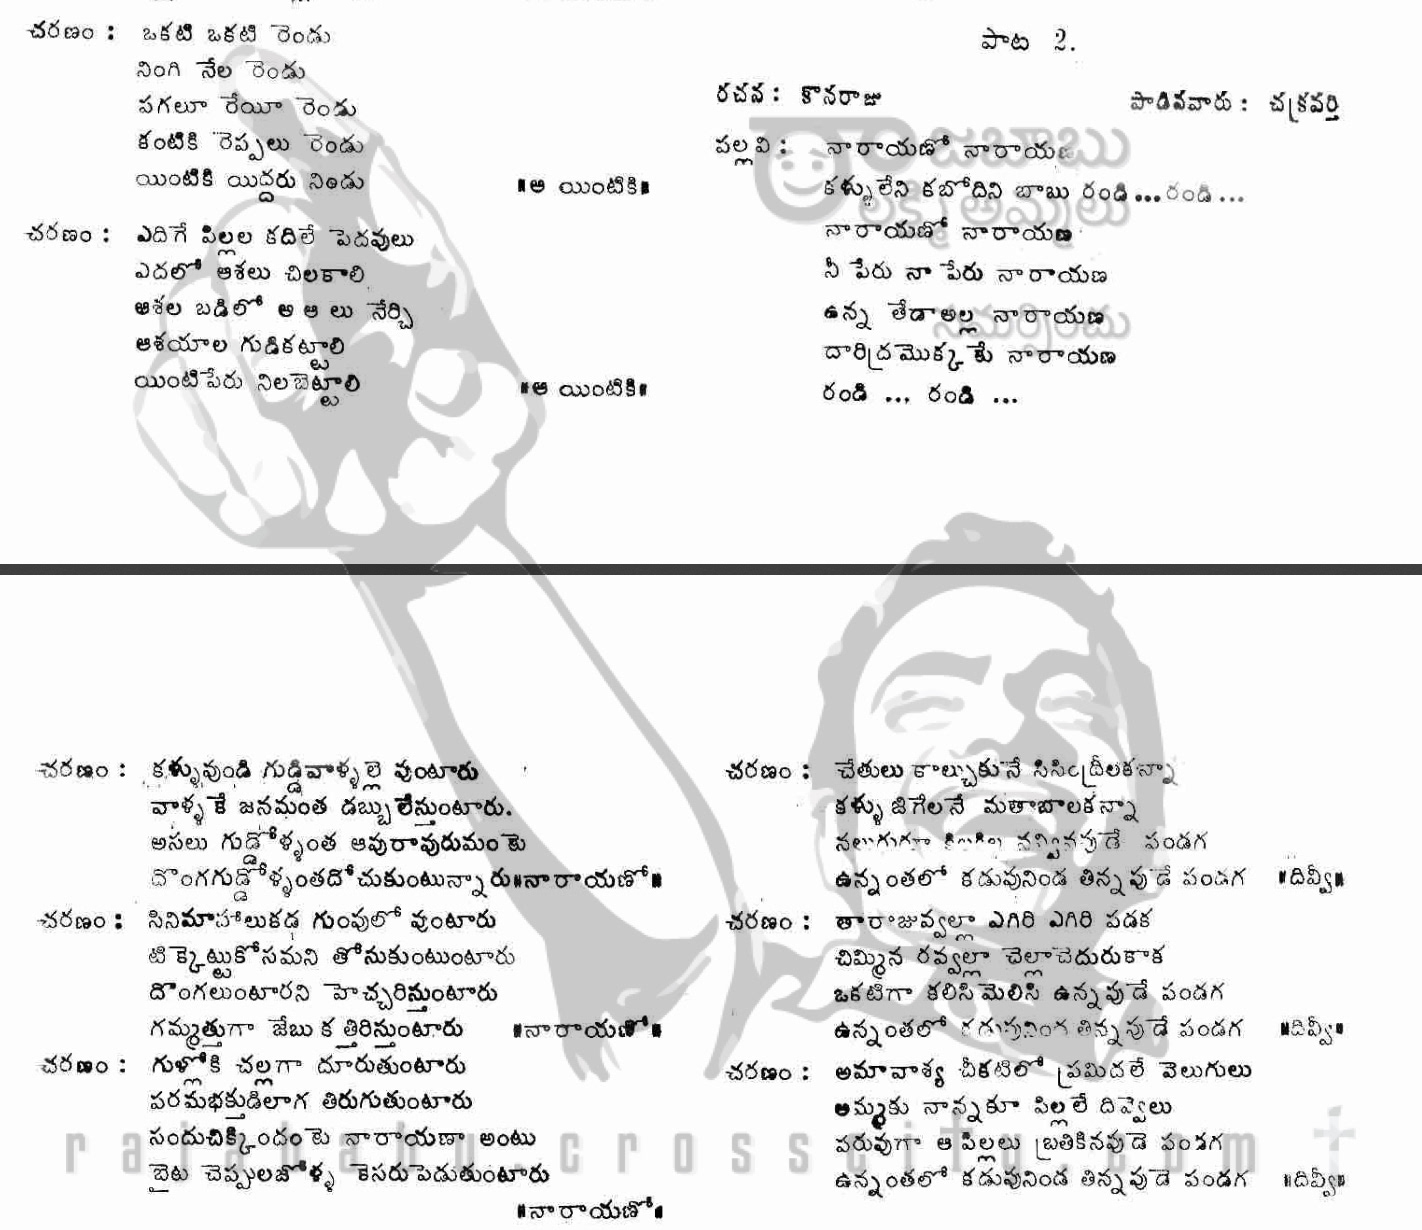 చరణం : ఒకటి ఒకటి రెండు
నింగి నేల రెండు
పగలూ రేయీ రెండు
కంటికి రెప్పలు రెండు
యింటికి యిద్దరు నిండు ॥ఆ యింటికి॥
చరణం : ఎదిగే పిల్లల కదిలే పెదవులు
ఎదలో ఆశలు చిలకాలి
ఆశల బడిలో అ ఆ లు నేర్చి
ఆశయాల గుడికట్టాలి
యింటిపేరు నిలబెట్టాలి ॥ఆ యింటికి॥
పాట 2.
రచన : కొనరాజు పాడినవారు : చక్రవర్తి
పల్లవి : నారాయణో నారాయణ
కళ్ళులేని కబోదిని బాబు రండి... రండి...
నారాయణో నారాయణ
నీ పేరు నా పేరు నారాయణ
ఉన్న తేడా అల్ల నారాయణ
దారిద్రమొక్కటే నారాయణ
రండి ... రండి ...
రాజబాబు
లక్కీ అప్పులు
సమర్పించు
చరణం : కళ్ళువుండి గుడ్డివాళ్ళల్లె వుంటారు
వాళ్ళకే జనమంత డబ్బులేస్తుంటారు.
అసలు గుడ్డోళ్ళంత ఆవురావురుమంటె
దొంగగుడ్డోళ్ళంతదోచుకుంటున్నారు॥నారాయణో॥
చరణం : సినిమాహాలుకడ గుంపులో వుంటారు
టిక్కెట్టుకోసమని తోసుకుంటుంటారు
దొంగలుంటారని హెచ్చరిస్తుంటారు
గమ్మత్తుగా జేబు కత్తిరిస్తుంటారు ॥నారాయణో॥
చరణం : గుళ్లోకి చల్లగా దూరుతుంటారు
పరమభక్తుడిలాగ తిరుగుతుంటారు
సందుచిక్కిందంటె నారాయణా అంటు
బైట చెప్పులజోళ్ళ కెసరుపెడుతుంటారు
॥నారాయణో॥
చరణం : చేతులు కాల్చుకునే సిసింద్రీలకన్నా
కళ్ళు జిగేలనే మతాబాలకన్నా
నలుగురూ కిలకిల నవ్వినపుడే పండగ
ఉన్నంతలో కడుపునిండ తిన్నపుడే పండగ ॥దివ్వీ॥
చరణం : తారాజువ్వల్లా ఎగిరి ఎగిరి పడక
చిమ్మిన రవ్వల్లా చెల్లాచెదురుకాక
ఒకటిగా కలిసిమెలిసి ఉన్నపుడే పండగ
ఉన్నంతలో కడుపునిండ తిన్నపుడే పండగ ॥దివ్వీ॥
చరణం : అమావాశ్య చీకటిలో ప్రమిదలే వెలుగులు
అమ్మకు నాన్నకూ పిల్లలే దివ్వెలు
పరువుగా ఆ పిల్లలు బ్రతికినపుడె పండగ
ఉన్నంతలో కడుపునిండ తిన్నపుడె పండగ ॥దివ్వీ॥
rajababu cross city.com